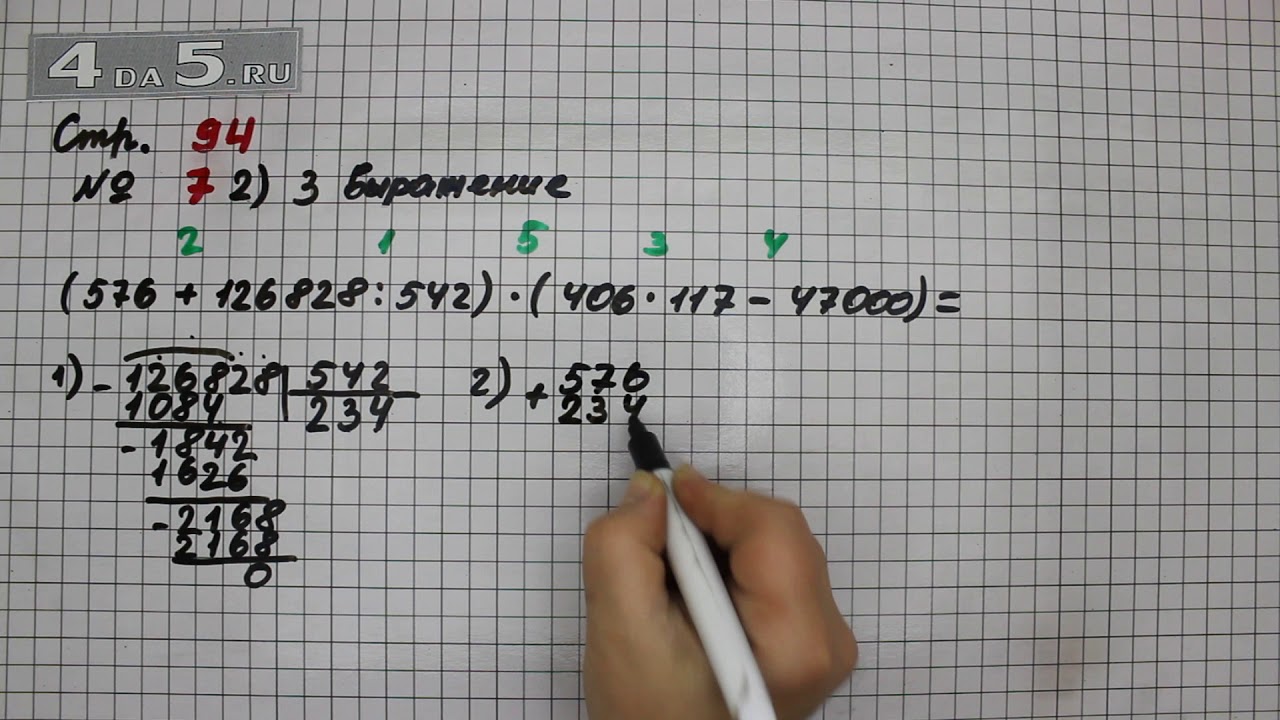 4DA5.RU
Стр. 94
№ 7 2) 3 выражение
2 1 5 3 4
(576 + 126828 : 542) · (406 · 117 - 47000) =
1) - 126828 | 542 2) + 576
1084 234 234
- 1842
1626
- 2168
2168
0